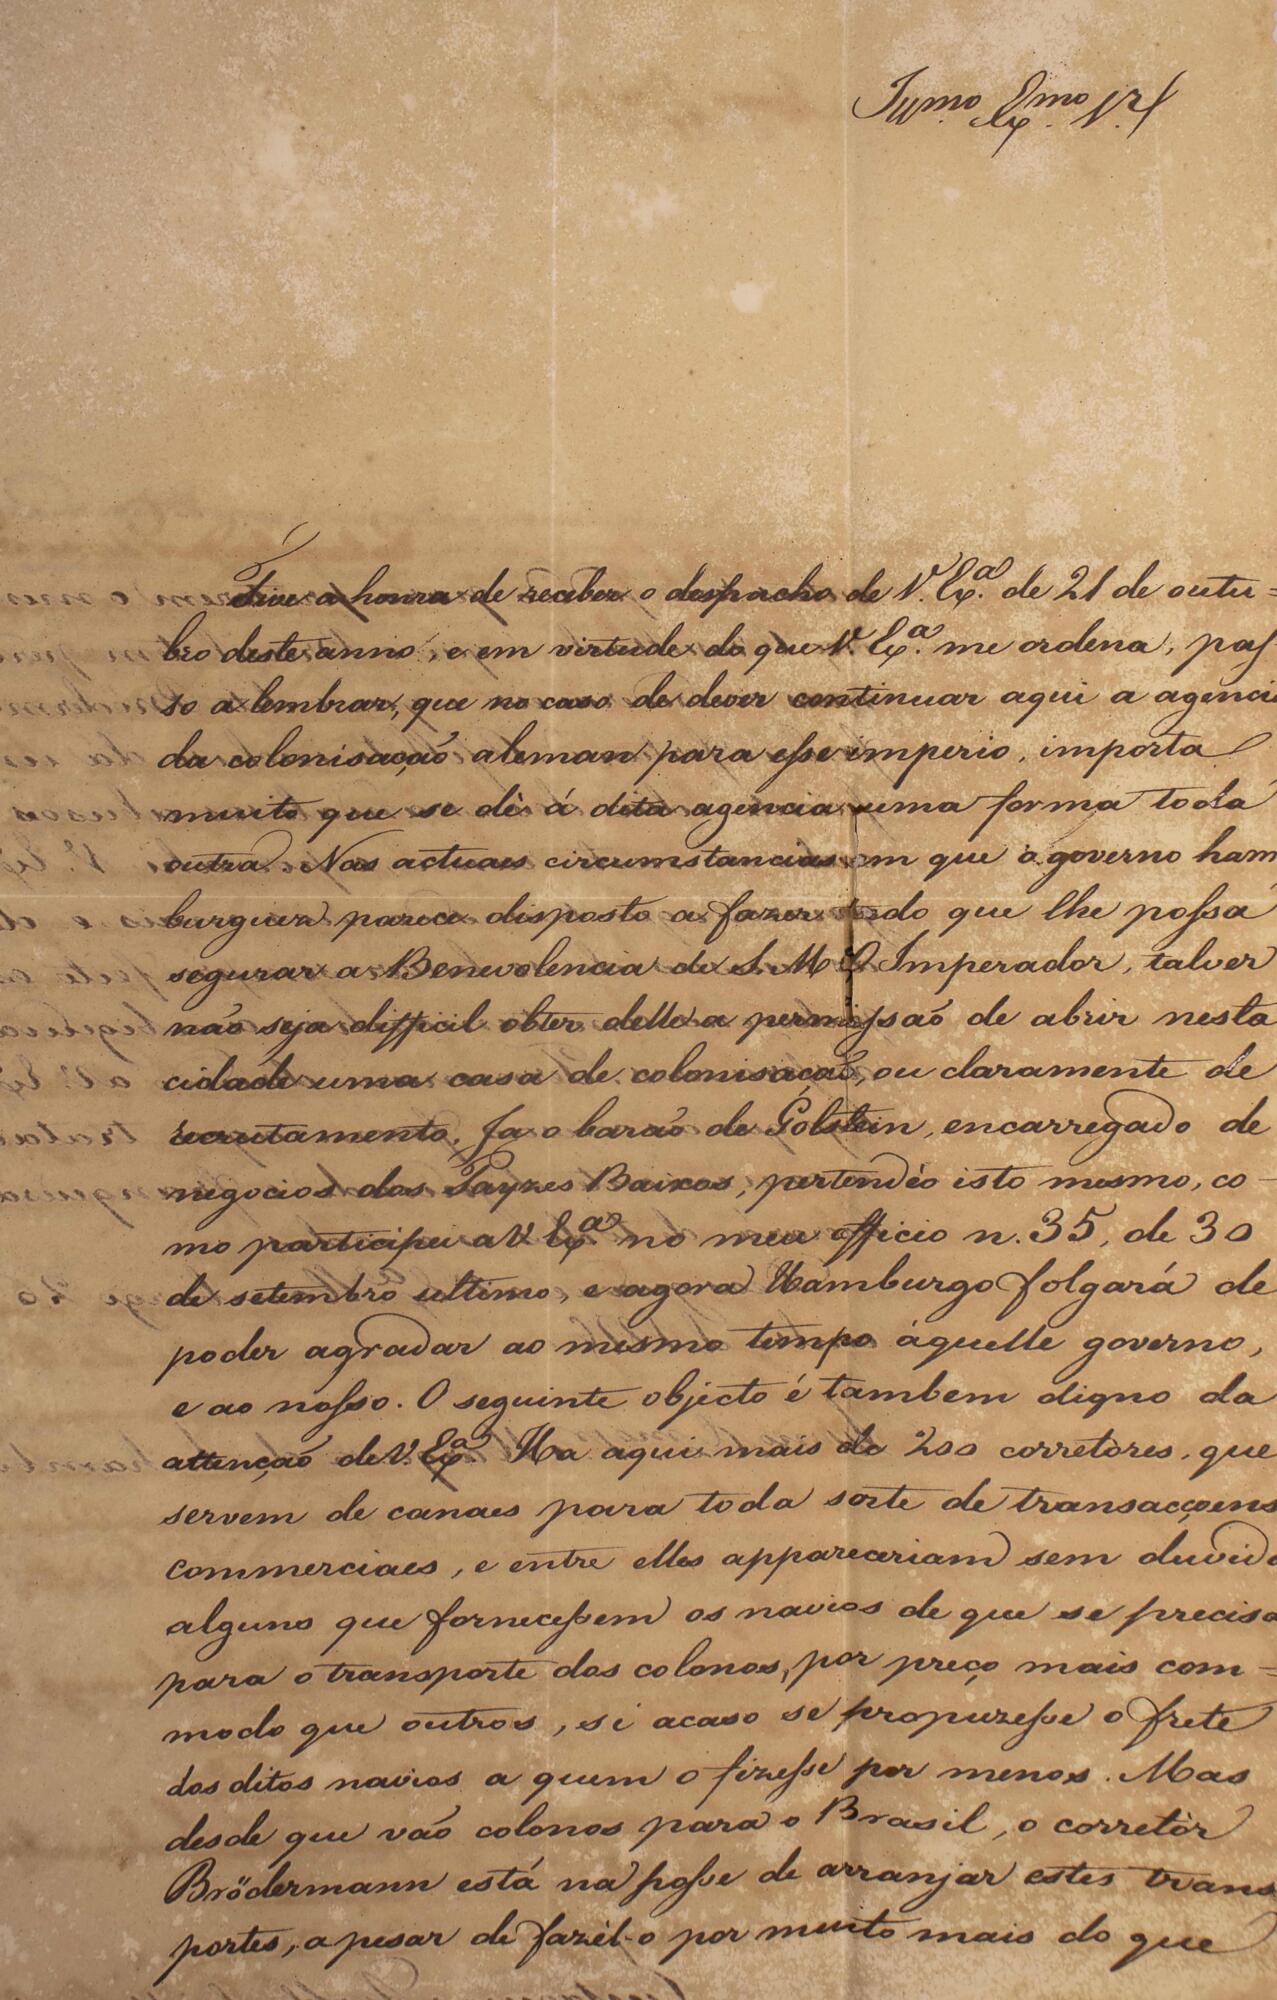 Illmo. Exmo. Sr.
Tive a honra de receber o despacho de V. Exa. de 21 de outu=
bro deste anno, e em virtude do que V. Exa. me ordena, pas-
so a lembrar, que no caso de dever continuar aqui a agencia
da colonisação aleman para esse imperio, importa
muito que se dê á dita agencia uma forma toda
outra. Nas actuaes circumstancias em que o governo ham
burguez parece disposto a fazer tudo que lhe possa
segurar a Benevolencia de S. M. O Imperador, talvez
não seja difficil obter delle a permissão de abrir nesta
cidade uma casa de colonisação, ou claramente de
recrutamento. Ja o barão de Golstein, encarregado de
negocios dos Payzes Baixos, pertendêo isto mesmo, co-
mo participei a V. Exa. no meu officio n. 35, de 30
de setembro ultimo, e agora Hamburgo folgará de
poder agradar ao mesmo tempo áquelle governo,
e ao nosso. O seguinte objecto é tambem digno da
attenção de V. Exa. Ha aqui mais de 200 corretores, que
servem de canaes para toda sorte de transacçoens
commerciaes, e entre elles appareceriam sem duvida
alguns que fornecessem os navios de que se precisa
para o transporte dos colonos, por preço mais com=
modo que outros, si acaso se propuzesse o frete
dos ditos navios a quem o fizesse por menos. Mas
desde que vão colonos para o Brasil, o corretòr
Brödermann está na posse de arranjar estes trans
portes, apesar de fazèl-o por muito mais do que